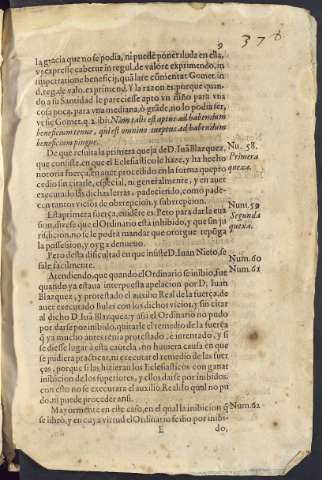 9
376
la gracia que no se podia, ni puede poner duda en ella,
y expresse habetur in regul. de valore exprimendo, in
impetratione beneficij, quā late cōmentat Gomet. in
d. reg. de valo. exprimend. Y la razon es: porque quan-
do a su Santidad le pareciesse apto vn diño para vna
cosa poca, para vna mediana, ò grāde, no lo podia ser,
vt sic Gomet. q. 2. ibi: Nam talis est aptus ad habendum
beneficium tenue, qui est omnino ineptus ad habendum
beneficium pingue.
De que resulta la primera queja de D. Iuā Blazquez,
que consiste, en que el Eclesiastico le haze, y ha hecho
notoria fuerça, en auer procedido en la forma que pro
cedio sin citarle, especial, ni generalmente, y en auer
executado las dichas letras, padeciendo, como pade-
cen tantos vicios de obrepcion, y subrepcion.
Nu. 58.
Primera
quexa.
Esta primera fuerça, euidēte es. Pero para dar la eua
sion, dirase que el Ordinario esta inhibido, y que sin ju
risdicion, no se le podra mandar que otorgue reponga
la possession, y oyga de nueuo.
Num. 59
Segunda
quexa.
Pero desta dificultad en que insiste D. Iuan Nieto, se
sale facilmente.
Num. 60
Atendiendo, que quando el Ordinario se inibio, fue
quando ya estaua interpuesta apelacion por D. Iuan
Blazquez, y protestado el auxilio Real de la fuerça, de
auer executado Bulas con los dichos vicios, y sin citar
al dicho D. Iuā Blazquez: y assi el Ordinario no pudo
por darse por inibido, quitarle el remedio de la fuerça
q̄ ya mucho antes tenia protestado, è intentado, y si
se diesse lugar à esta cautela, no huuiera causa en que
se pudiera practicar, ni executar el remedio de las fuer
ças, porque si las hizieran los Eclesiasticos con ganar
inibicion de los superiores, y ellos darse por inibidos:
con esto no se executara el auxilio Real: lo qual no pu
do, ni puede proceder assi.
Num. 61
Mayormente en este caso, en el qual la inibicion q̄
se libro, y en cuya virtud el Ordinario se dio por inibi-
Num. 62
E
do,